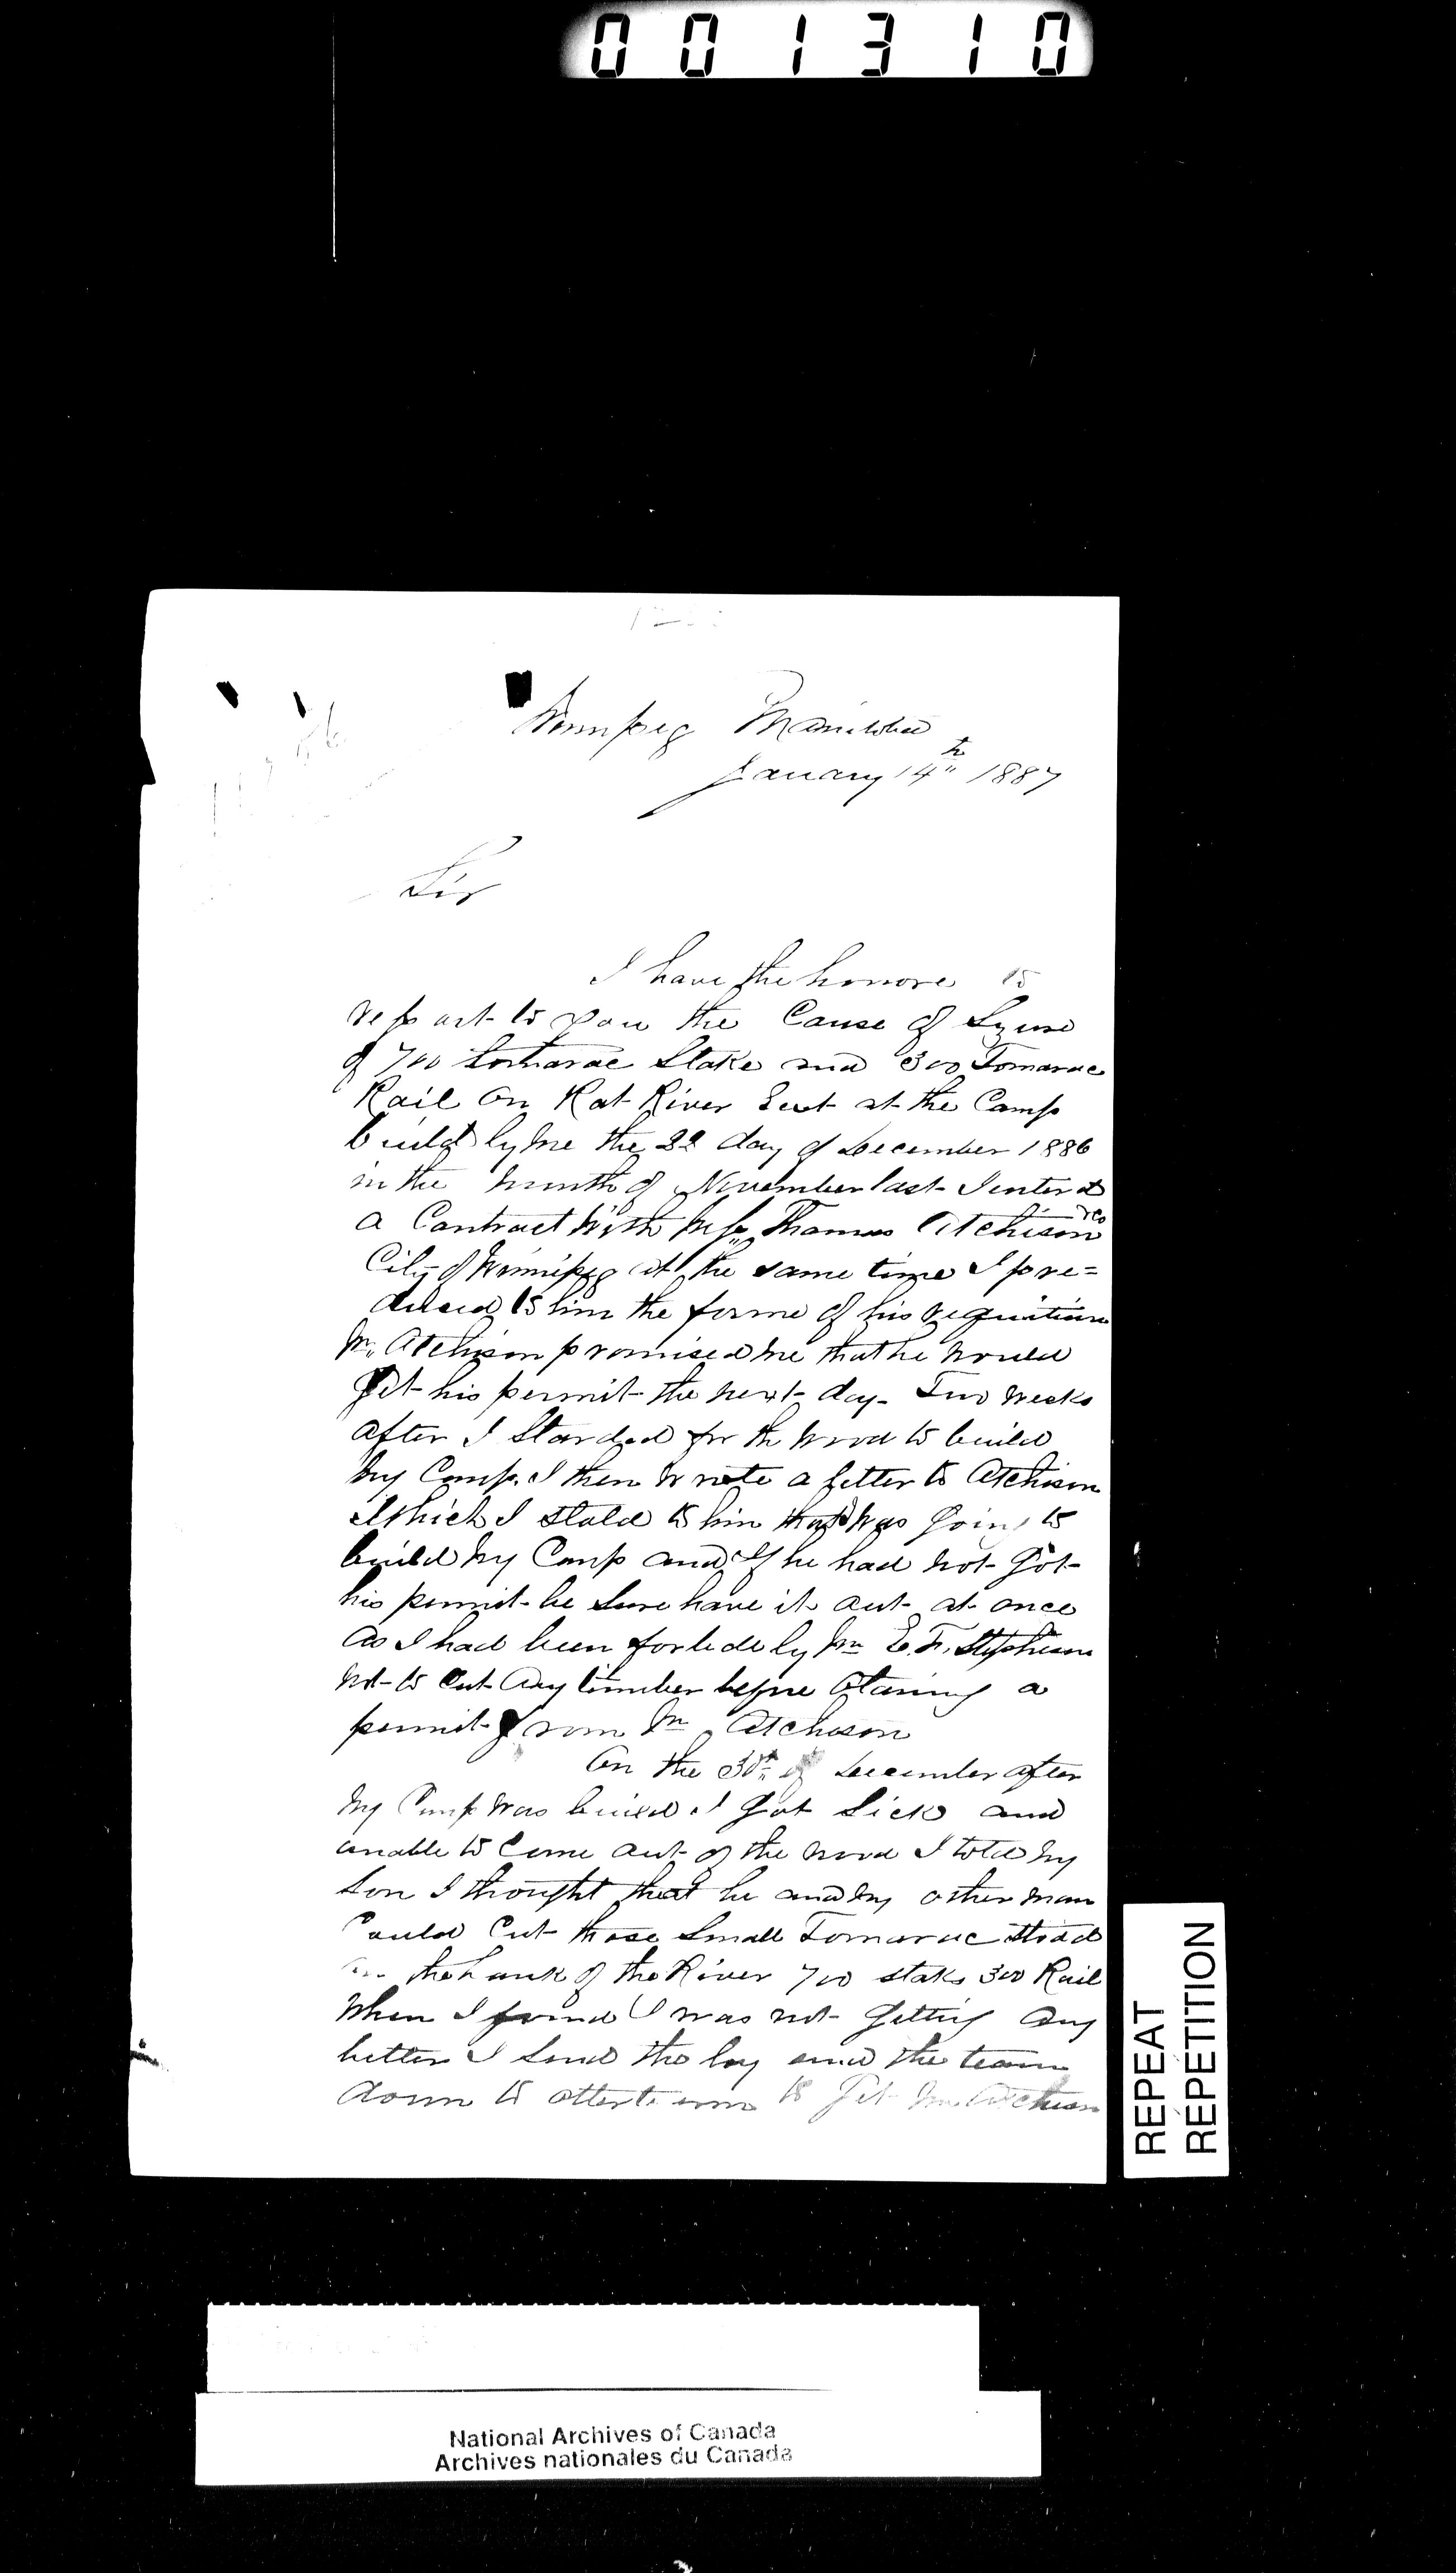 001310
Winnipeg Manitoba
January 14th 1887
Sir
I have the honore to
report to you the Cause of
of 700 Tomarac Stake and 300 Tomarac
Rail on Rat River at the Camp
build by me the 22 day of December 1886
in the month of November last I enterd
a Contract with Mr Thomas Atchison
City of Winnipeg at the same time I pre=
him the forme of his
Mr Atchison promised me that he would
Get his permit the next day. Two weeks
after I Starded for the wood to build
my Camp. I then wrote a letter to Atchison
which I stated to him that I was going to
build my Camp and If he had not Got
his permit be sure have it out at once
as I had been forbede by Mr E. F. Stephenson
not to Cut any timber before a
permit from Mr Atchison
On the 30th of December after
my Camp was build I Got Sick and
unable to Come out of the wood I told my
Son I thought that he and my other man
Could Cut those Small Tomarac
the bank of the River 700 stake 300 Rail
When I found I was not Getting any
better I send the boy and the team
down to to Get Mr Atchison
REPEAT
REPETITION
National Archives of Canada
Archives nationales du Canada